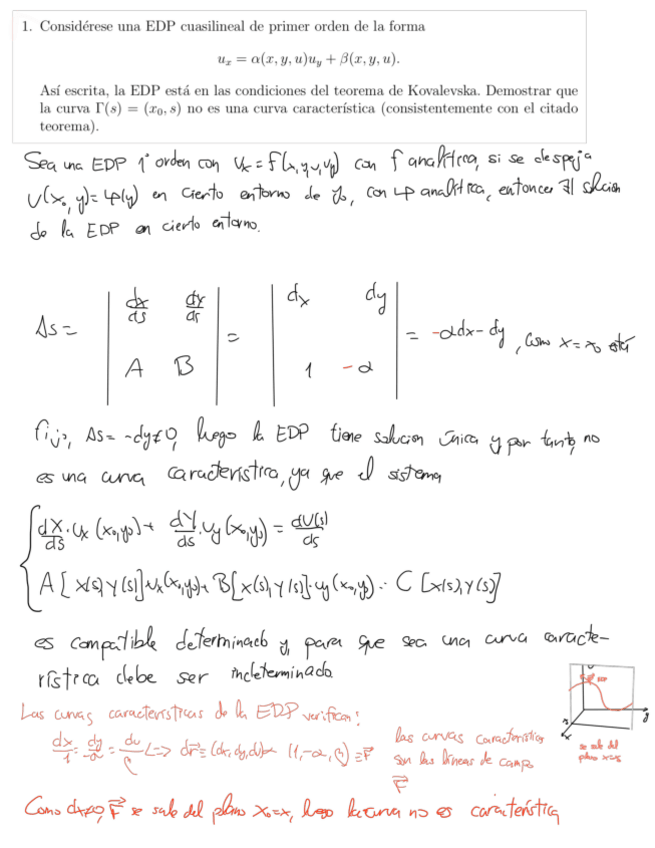 1. Considérese una EDP cuasilineal de primer orden de la forma
u_x = α(x, y, u)u_y + β(x, y, u).
Así escrita, la EDP está en las condiciones del teorema de Kovalevska. Demostrar que
la curva Γ(s) = (x_0, s) no es una curva característica (consistentemente con el citado
teorema).
Sea una EDP 1º orden con u_x = f(x, y, u, u_y) con f analítica, si se despeja
u(x_0, y) = φ(y) en cierto entorno de y_0, con φ analítica, entonces ∃! solución
de la EDP en cierto entorno.
Δs = | dx/ds dy/ds | = | dx dy | = -αdx - dy, como x = x_0 está
| A B | | 1 -α |
fijo, Δs = -dy ≠ 0, luego la EDP tiene solución única y por tanto, no
es una curva característica, ya que el sistema
{ dX/ds · u_x (x_0, y_0) + dY/ds · u_y (x_0, y_0) = dU(s)/ds
A[x(s), y(s)] · u_x(x_0, y_0) + B[x(s), y(s)] · u_y(x_0, y_0) = C[x(s), y(s)]
es compatible determinado y, para que sea una curva caracte-
rística debe ser indeterminado.
u
y
x
se sale del
plano x=x_0
Las curvas características de la EDP verifican:
dx/1 = dy/-α = du/β <=> dr ≡ (dx, dy, du) ∝ (1, -α, β) ≡ F
las curvas características
son las líneas de campo
F
Como dx≠0, F se sale del plano x_0=x, luego la curva no es característica